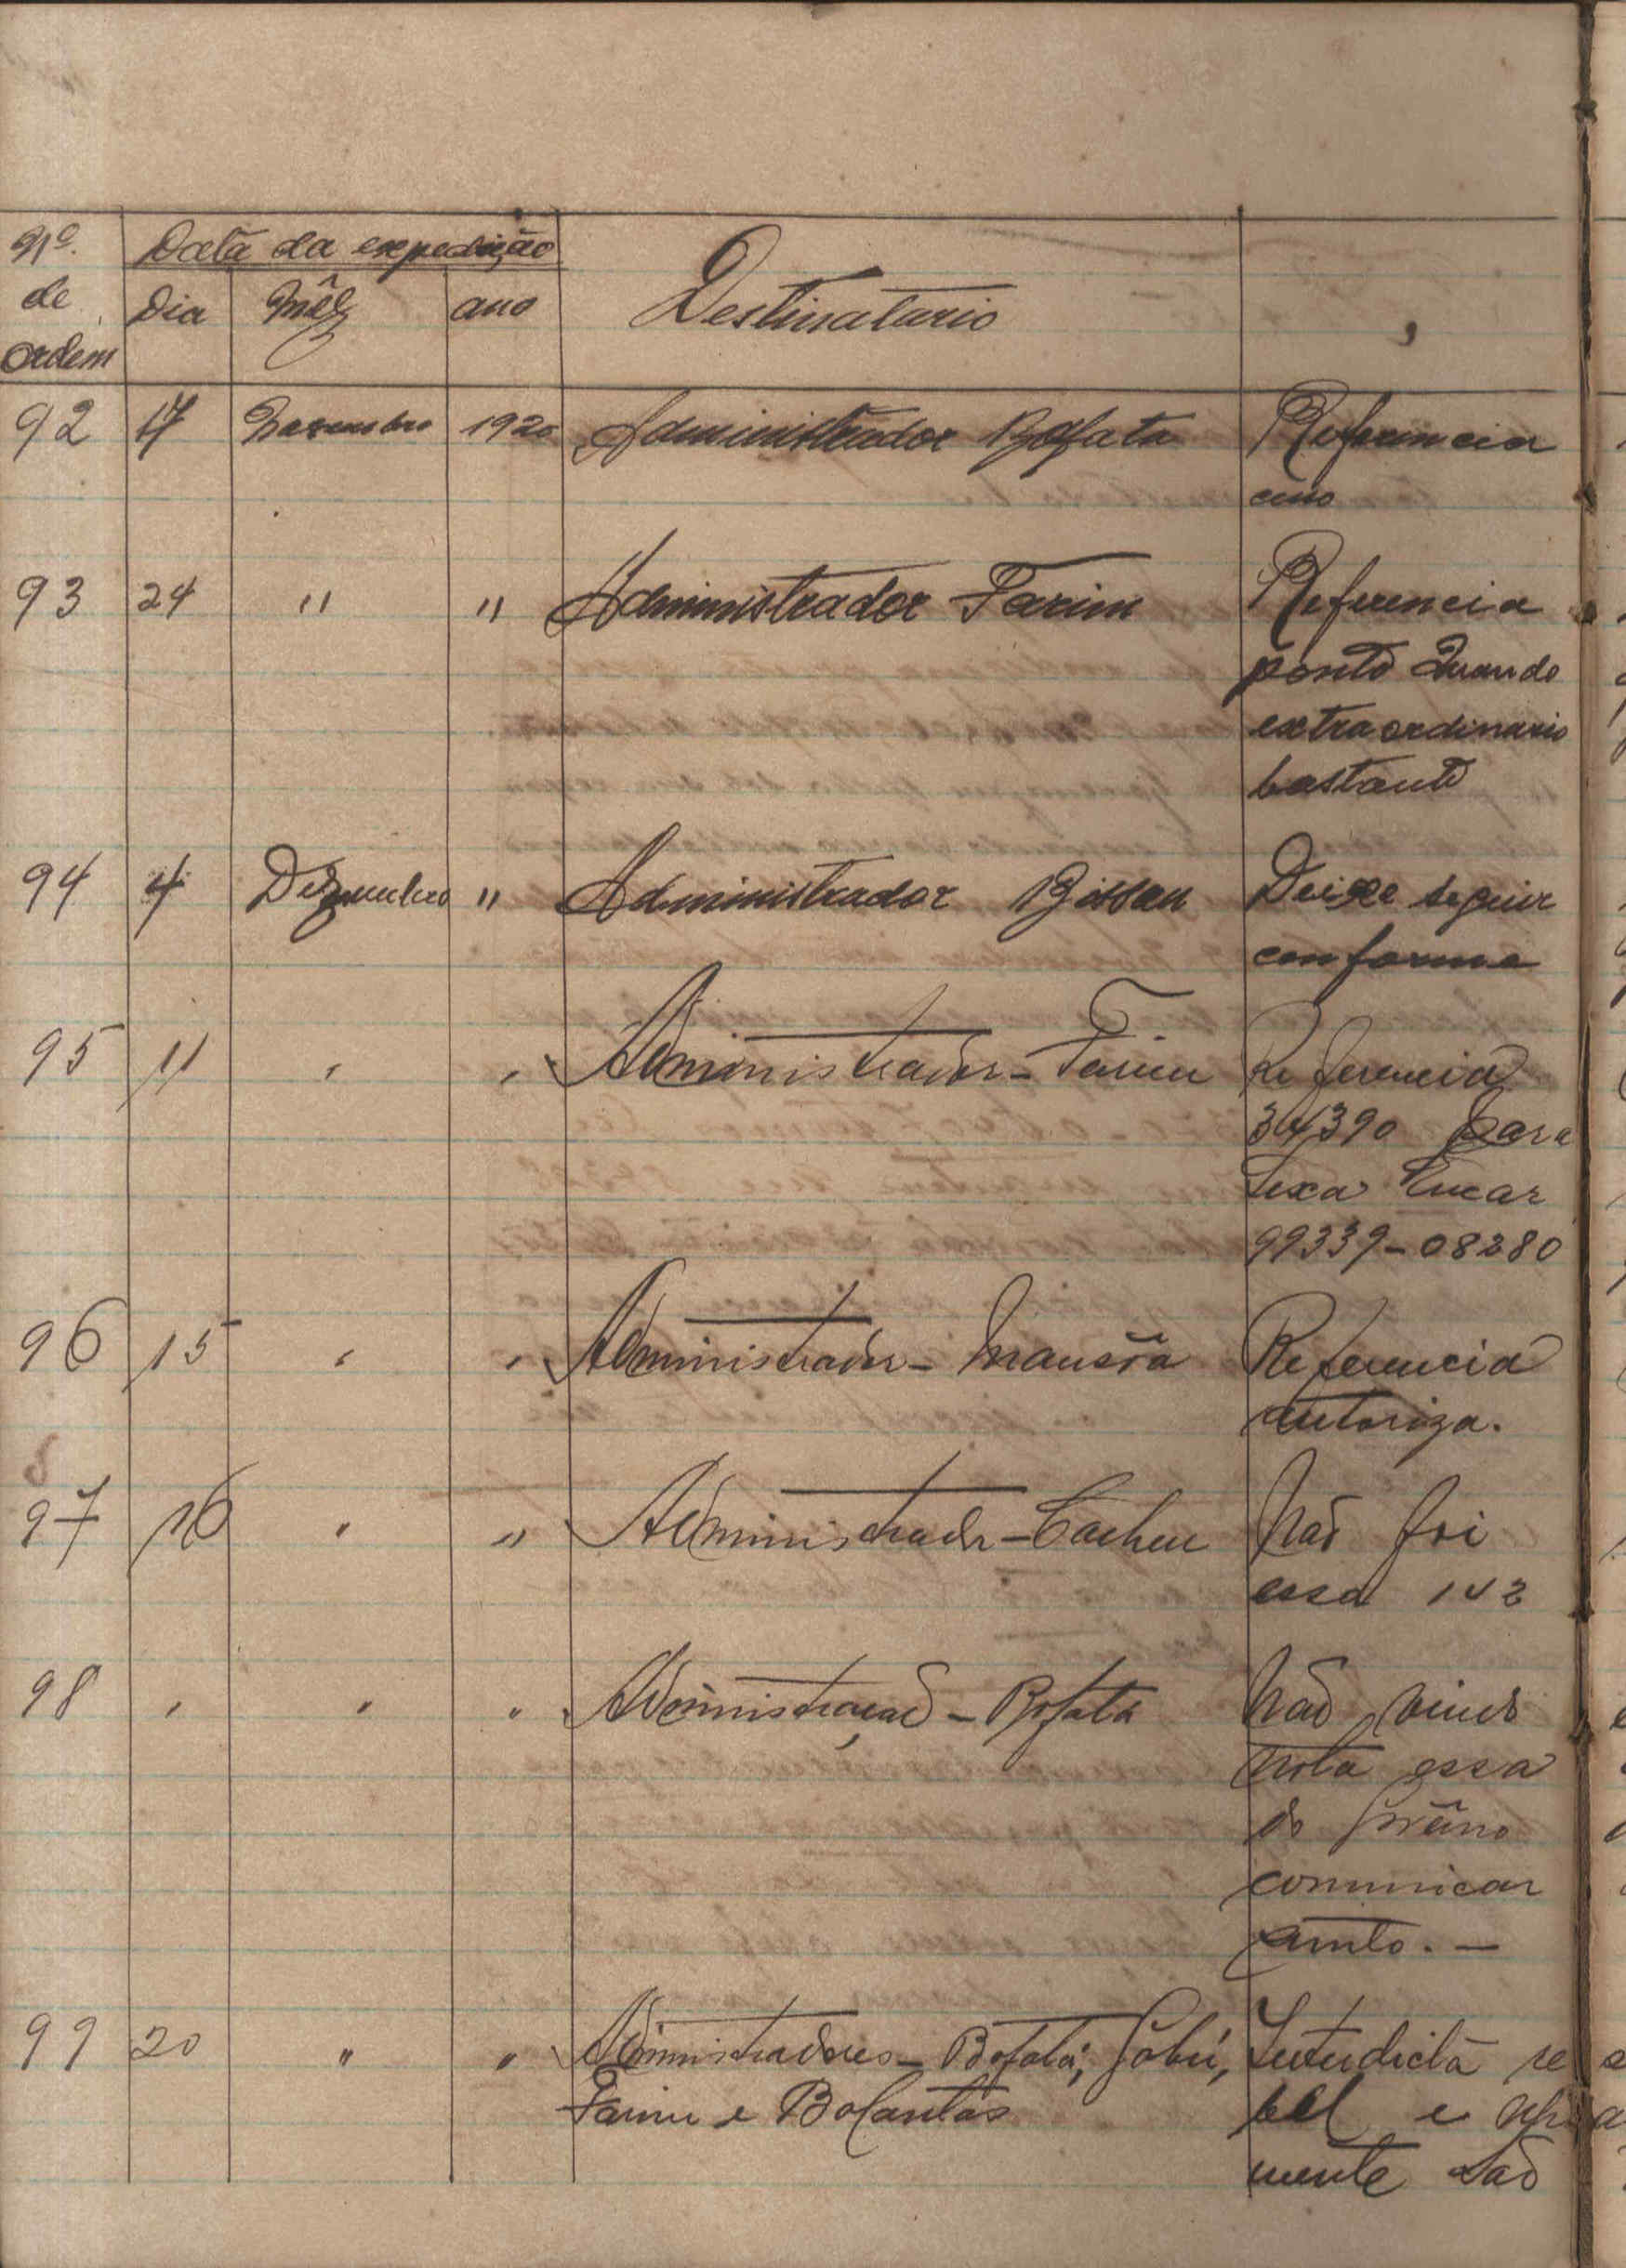 Nº de ordem | Data da expedição | Destinatario
Dia | Mêz | ano
92 | 17 | 1920 | Administrador Bafata | Referencia
93 | 24 | " | " | Administrador Farim | Referencia
ponto Quando
extraordinario
bastante
94 | 4 | Dezembro | " | Administrador Bissau | Deixe seguir
conforme
95 | 11 | " | " | Administrador - Farim | Referencia
34390 Para
99339 - 08280
96 | 15 | " | " | Administrador - Mansôa | Referencia
autoriza.
97 | 16 | " | " | Administrador - Cacheu | Não foi
essa 142
98 | " | " | " | Administração - Bafatá | Não
nota essa
do
comunicar
99 | 20 | " | " | Administradores - Bafatá, Gabú, | Interdicta re
Farim e Bolantas | bel e
mente são